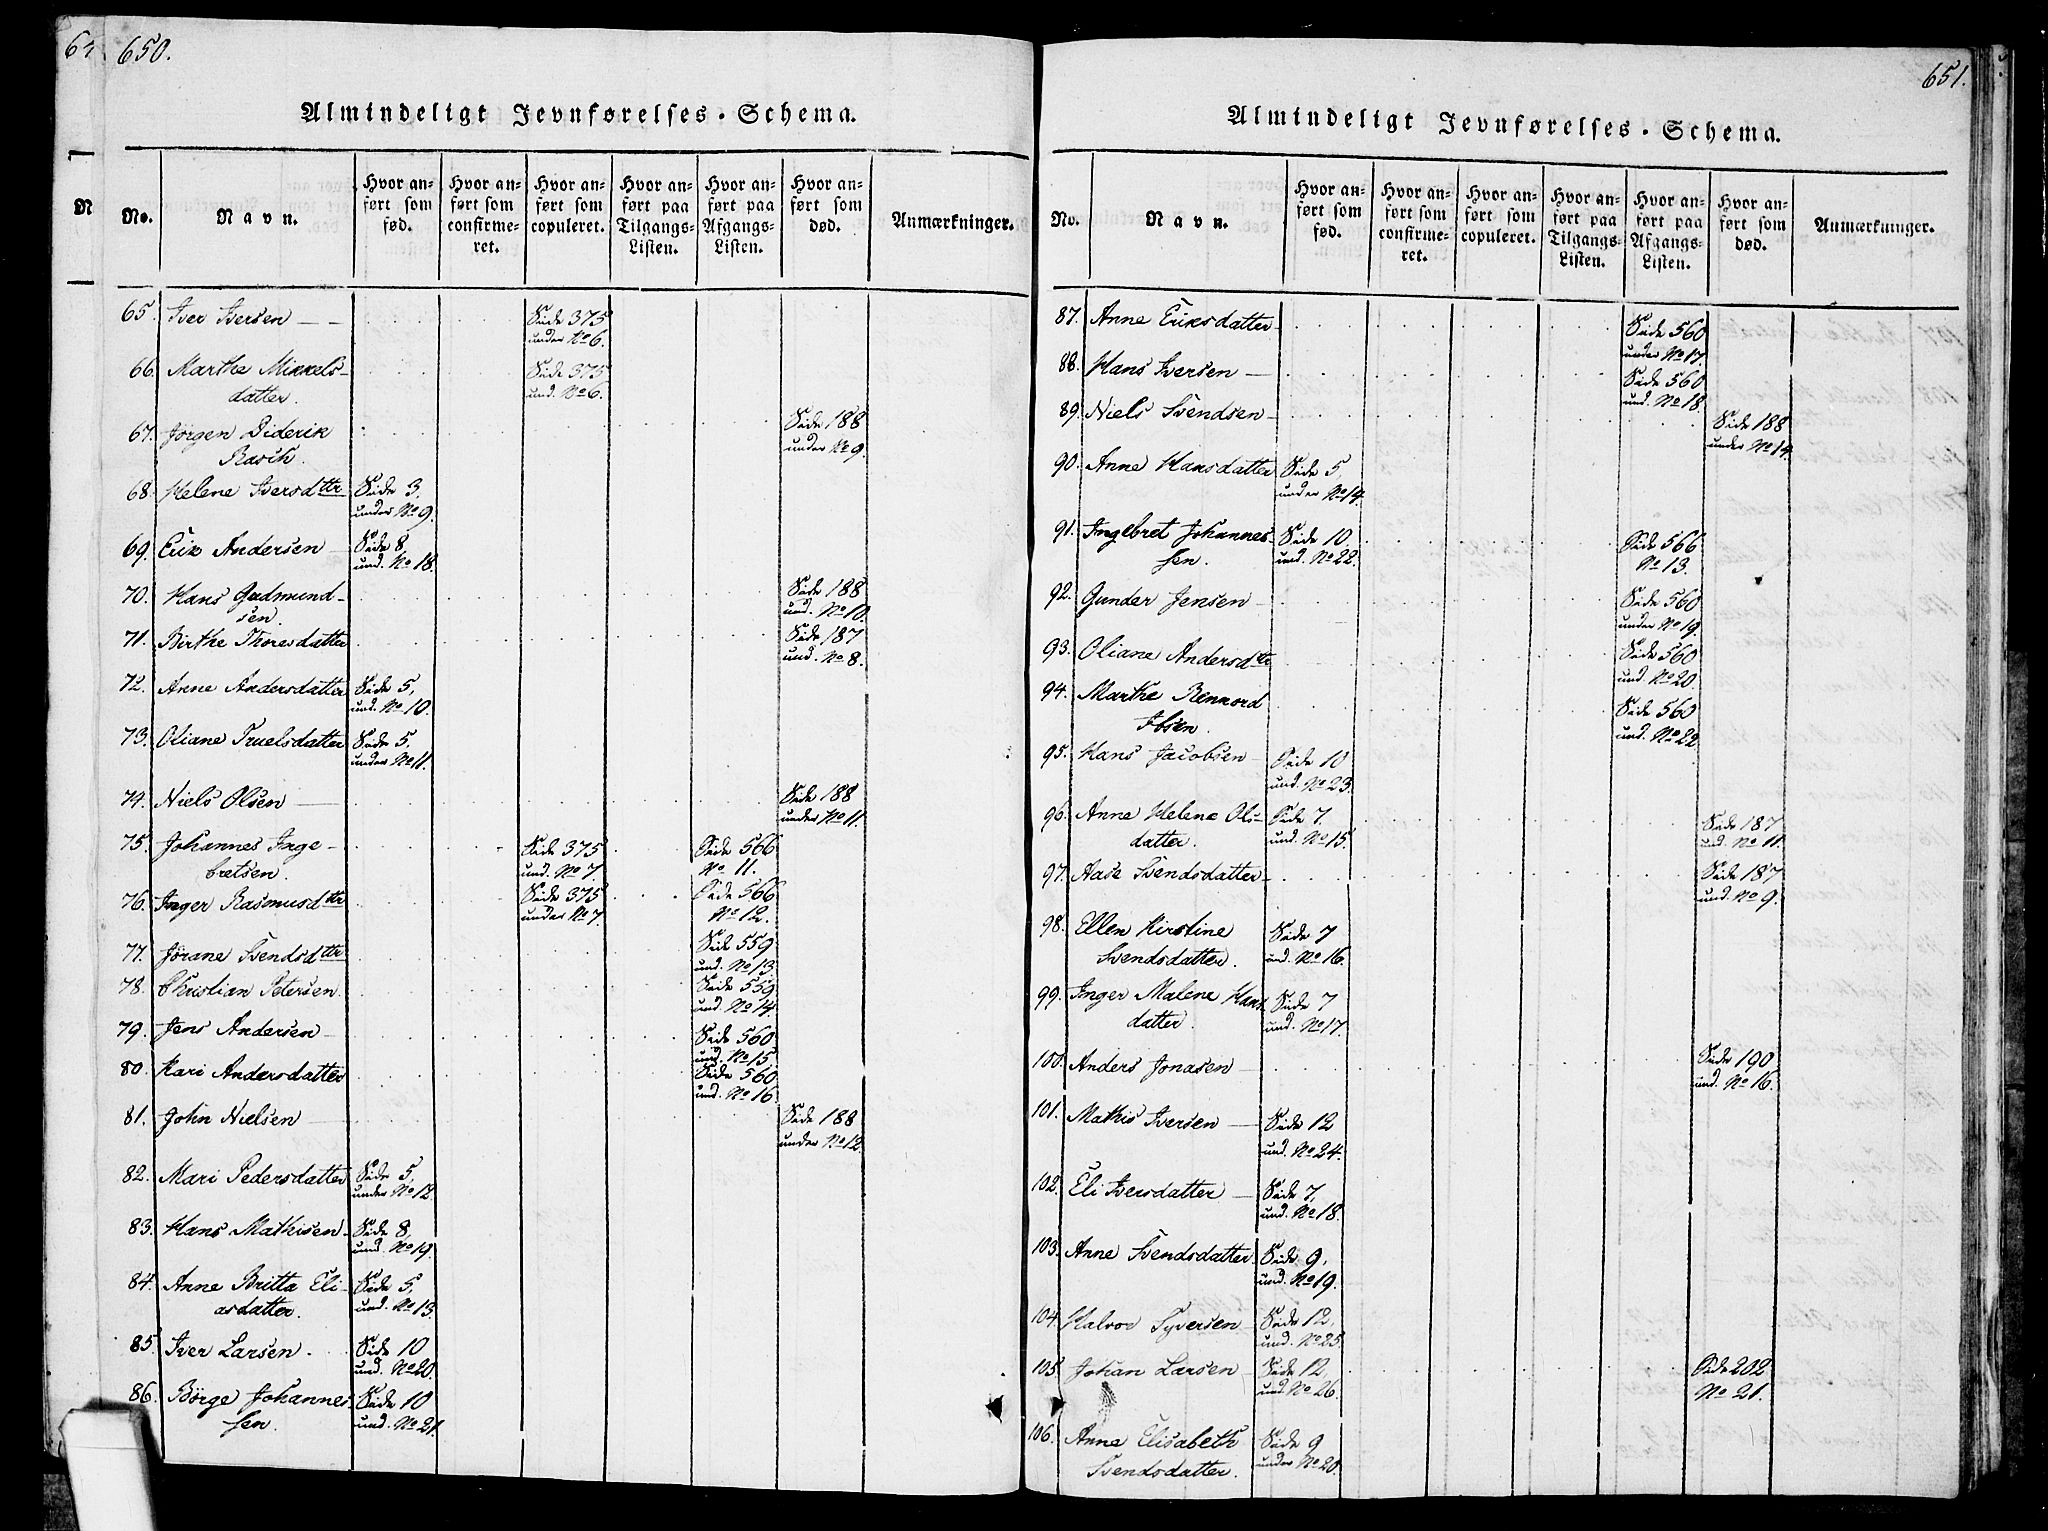 650.
Almindeligt Jevnførelses-Schema.
No.
Navn.
Hvor an-
ført som
fød.
Hvor an-
ført som
confirme-
ret.
Hvor an-
ført som
copuleret.
Hvor an-
ført paa
Tilgangs-
Listen.
Hvor an-
ført paa
Afgangs-
Listen.
Hvor an-
ført som
død.
Anmærkninger.
65. Iver Iversen — Side 375
under No 6.
66. Marthe Mikkels- Side 375
datter. und. No 6.
67. Jörgen Diderik Side 188
Rasch. under No 9.
68. Helene Iversdttr Side 3.
under No 9.
69. Erik Andersen Side 8
und. No 18.
70. Hans Gudmund- Side 188
sen. und. No 10.
71. Birthe Thoresdatter Side 187
und. No 8.
72. Anne Andersdatter Side 5,
und. No 10.
73. Oliane Truelsdatter Side 5,
under No 11.
74. Niels Olsen — Side 188
under No 11.
75. Johannes Inge- Side 375 Side 566
bretsen. und. No 7. No 11.
76. Inger Rasmusdttr Side 375 Side 566
under No 7. No 12.
77. Jörane Svendsdttr Side 559
und. No 13.
78. Christian Petersen. Side 559
und. No 14.
79. Jens Andersen — Side 560
und. No 15
80. Kari Andersdatter Side 560
und. No 16
81. John Nielsen — Side 188
under No 12.
82. Mari Pedersdatter Side 5,
under No 12.
83. Hans Mathisen Side 8,
und. No 19.
84. Anne Britta Eli- Side 5,
asdatter. und. No 13.
85. Iver Larsen. Side 10
und. No 20.
86. Börge Johannes- Side 10
sen. und. No 21.
651.
Almindeligt Jevnførelses-Schema.
No.
Navn.
Hvor an-
ført som
fød.
Hvor an-
ført som
confirme-
ret.
Hvor an-
ført som
copuleret.
Hvor an-
ført paa
Tilgangs-
Listen.
Hvor an-
ført paa
Afgangs-
Listen.
Hvor an-
ført som
død.
Anmærkninger.
87. Anne Eriksdatter Side 560
under No 17
88. Hans Iversen — Side 560
und. No 18.
89. Niels Svendsen — Side 188
under No 14.
90. Anne Hansdatter Side 5
under No 14.
91. Ingebret Johannes- Side 10. Side 566
sen. und. No 22. No 13.
92. Gunder Jensen — Side 560
under No 19.
93. Oliane Andersdtr Side 560
und. No 20.
94. Marthe Rennord Side 560
Ibsen. und. No 22
95. Hans Jacobsen — Side 10
und. No 23.
96. Anne Helene Ols- Side 7. Side 187
datter. und. No 15. und. No 11.
97. Aase Svendsdatter — Side 187
und. No 9.
98. Ellen Kirstine Side 7
Svendsdatter. und. No 16.
99. Inger Malene Hans- Side 7
datter. und. No 17.
100. Anders Jonasen — Side 190
und. No 16.
101. Mathis Iversen — Side 12
und. No 24.
102. Eli Iversdatter — Side 7,
und. No 18.
103. Anne Svendsdatter Side 9,
und. No 19.
104. Halvor Syversen Side 12,
und. No 25.
105. Johan Larsen — Side 12, Side 202
und. No 26. No 21.
106. Anne Elisabeth Side 9
Svendsdatter. under No 20.